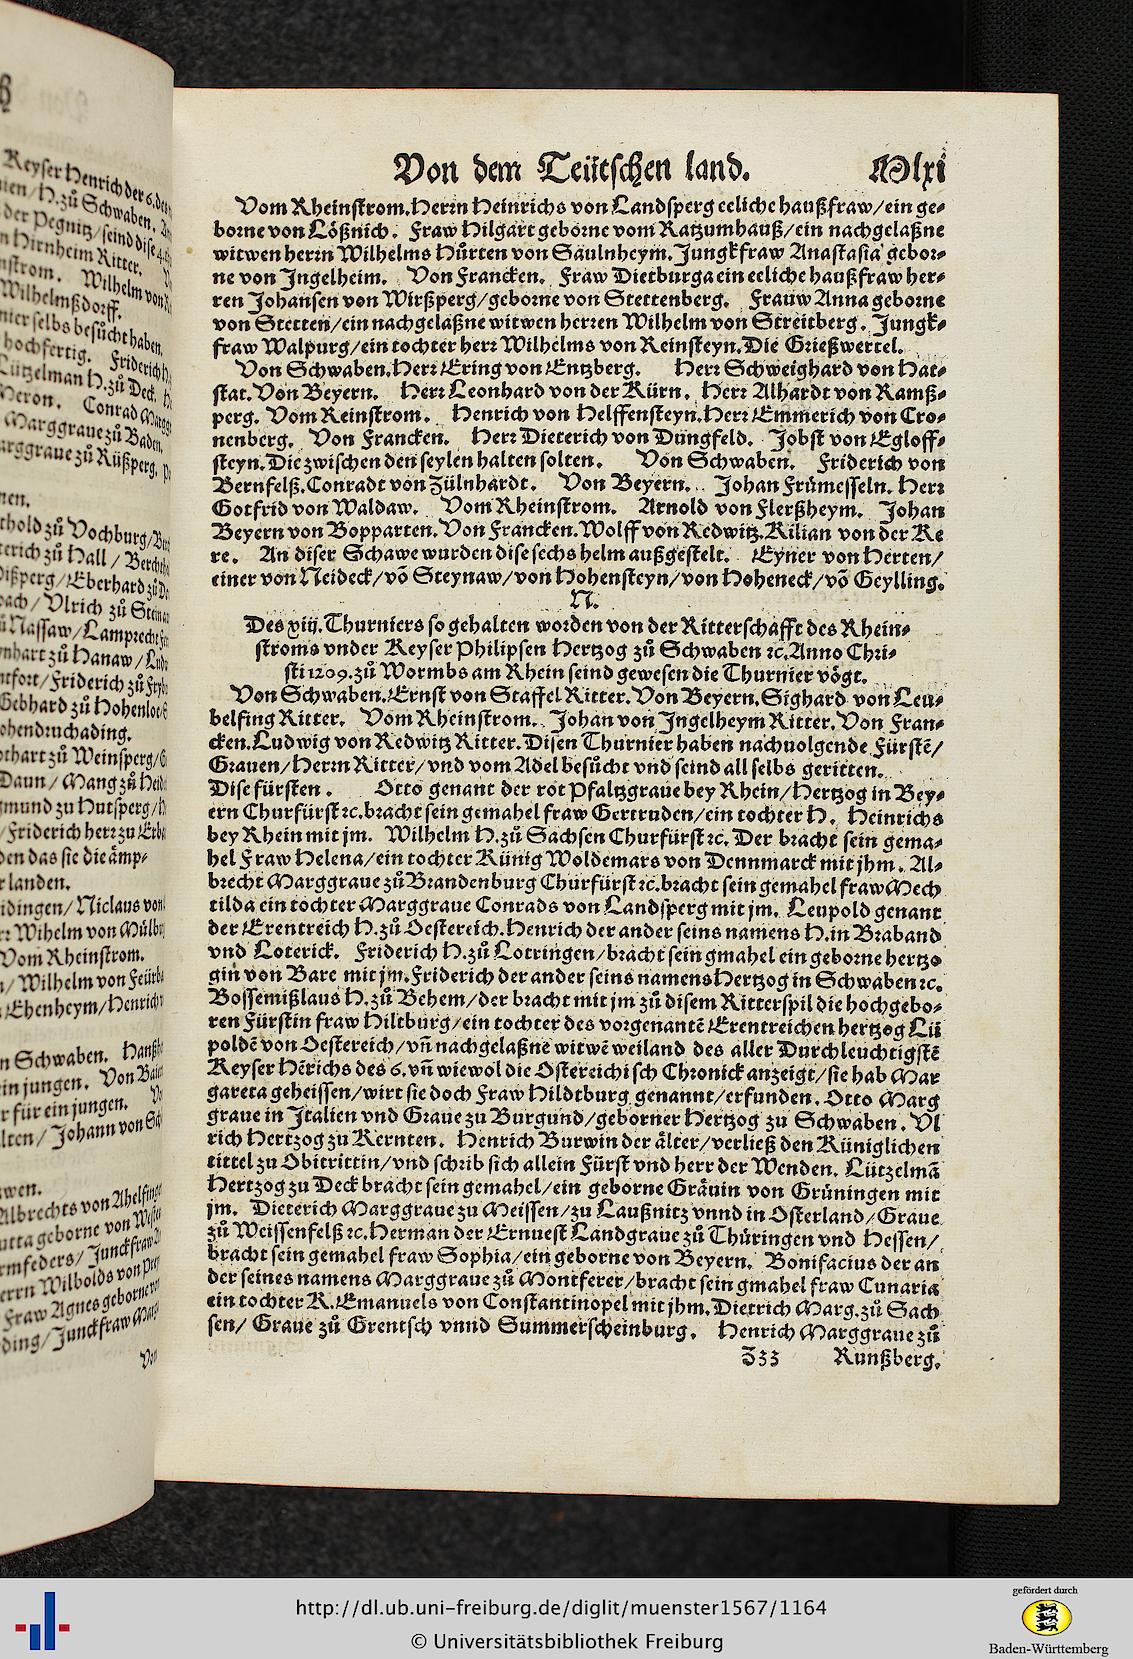 Von dem Teütschen land. Mlxi
Vom Rheinstrom. Herrn Heinrichs von Landsperg eeliche haußfraw/ein ge-
borne von Lößnich. Fraw Hilgart geborne vom Ratzumhauß/ein nachgelaßne
witwen herrn Wilhelms Hůrten von Saulnheym. Jungkfraw Anastasia gebor-
ne von Ingelheim. Von Francken. Fraw Dietburga ein eeliche haußfraw her-
ren Johansen von Wirßperg/geborne von Stettenberg. Frauw Anna geborne
von Stetten/ein nachgelaßne witwen herren Wilhelm von Streitberg. Jungk-
fraw Walpurg/ein tochter herr Wilhelms von Reinsteyn. Die Grießwertel.
Von Schwaben. Herr Ering von Entzberg. Herr Schweighard von Hat-
stat. Von Beyern. Herr Leonhard von der Kürn. Herr Alhardt von Ramß-
perg. Vom Reinstrom. Henrich von Helffensteyn. Herr Emmerich von Cro-
nenberg. Von Francken. Herr Dieterich von Dungfeld. Jobst von Egloff-
steyn. Die zwischen den seylen halten solten. Von Schwaben. Friderich von
Bernfelß. Conradt von Zülnhardt. Von Beyern. Johan Frümesseln. Herr
Gotfrid von Waldaw. Vom Rheinstrom. Arnold von Flerßheym. Johan
Beyern von Bopparten. Von Francken. Wolff von Redwitz. Kilian von der Ke
re. An diser Schawe wurden dise sechs helm außgestelt. Eyner von Herten/
einer von Neideck/võ Steynaw/von Hohensteyn/von Hoheneck/võ Geylling.
N.
Des xiij. Thurniers so gehalten worden von der Ritterschafft des Rhein-
stroms vnder Keyser Philipsen Hertzog zů Schwaben ꝛc. Anno Chri-
sti 1209. zů Wormbs am Rhein seind gewesen die Thurnier vögt.
Von Schwaben. Ernst von Staffel Ritter. Von Beyern. Sighard von Leu-
belfing Ritter. Vom Rheinstrom. Johan von Ingelheym Ritter. Von Fran-
cken. Ludwig von Redwitz Ritter. Disen Thurnier haben nachuolgende Fürstẽ/
Grauen/Herrn Ritter/vnd vom Adel besůcht vnd seind all selbs geritten.
Dise fürsten. Otto genant der rot Pfaltzgraue bey Rhein/Hertzog in Bey-
ern Churfürst ꝛc. bracht sein gemahel fraw Gertruden/ein tochter H. Heinrichs
bey Rhein mit jm. Wilhelm H. zů Sachsen Churfürst ꝛc. Der bracht sein gema-
hel Fraw Helena/ein tochter Künig Woldemars von Dennmarck mit jhm. Al-
brecht Marggraue zů Brandenburg Churfürst ꝛc. bracht sein gemahel fraw Mech
tilda ein tochter Marggraue Conrads von Landsperg mit jm. Leupold genant
der Erentreich H. zů Oestereich. Henrich der ander seins namens H. in Braband
vnd Loterick. Friderich H. zů Lotringen/bracht sein gmahel ein geborne hertzo
gin von Bare mit jm. Friderich der ander seins namens Hertzog in Schwaben ꝛc.
Bossemißlaus H. zů Behem/der bracht mit jm zů disem Ritterspil die hochgebo-
ren Fürstin fraw Hiltburg/ein tochter des vorgenantẽ Erentreichen hertzog Lü
poldẽ von Oestereich/vñ nachgelaßne witwẽ weiland des aller Durchleuchtigstẽ
Keyser Hẽrichs des 6. vñ wiewol die Ostereichisch Chronick anzeigt/sie hab Mar
gareta geheissen/wirt sie doch Fraw Hildtburg genannt/erfunden. Otto Marg
graue in Italien vnd Graue zu Burgund/geborner Hertzog zu Schwaben. Vl
rich Hertzog zu Kernten. Henrich Burwin der älter/verließ den Küniglichen
tittel zu Obitrittin/vnd schrib sich allein Fürst vnd herr der Wenden. Lützelmã
Hertzog zu Deck bracht sein gemahel/ein geborne Gräuin von Grüningen mit
jm. Dieterich Marggraue zu Meissen/zu Laußnitz vnnd in Osterland/Graue
zů Weissenfelß ꝛc. Herman der Ernuest Landgraue zů Thüringen vnd Hessen/
bracht sein gemahel fraw Sophia/ein geborne von Beyern. Bonifacius der an
der seines namens Marggraue zů Montferer/bracht sein gmahel fraw Cunaria
ein tochter K. Emanuels von Constantinopel mit jhm. Dietrich Marg. zů Sach
sen/ Graue zů Grentsch vnnd Summerscheinburg. Henrich Marggraue zů
Zzz Runßberg.
Keyser Henrich der 6. des
H. zů Schwaben.
der Pegnitz/seind dise
Hirnheim Ritter.
Wilhelm von
Wilhelmßdorff.
selbs besůcht haben.
hochfertig. Friderich H.
Lützelman H. zů Deck.
Conrad
Marggraue zů Baden.
zů Rüßperg.
zů Vochburg/
zů Hall/
Eberhard zů
Vlrich zů
Nassaw/Lamprecht
zů Hanaw/
Friderich zů
Gebhard zů Hohenloe/
zů Weinsperg/
Daun/Mang zů
zu Hutsperg/
Friderich herr zu
den das sie die ämp-
landen.
Niclaus von
Wihelm von
Vom Rheinstrom.
Wilhelm von
Ehenheym/Henrich
Schwaben.
jungen. Von
für ein jungen.
Johann von
Albrechts von
geborne von
Junckfraw
Wilbolds von
Fraw Agnes geborne
Junckfraw
Von
http://dl.ub.uni-freiburg.de/diglit/muenster1567/1164
© Universitätsbibliothek Freiburg
gefördert durch
Baden-Württemberg